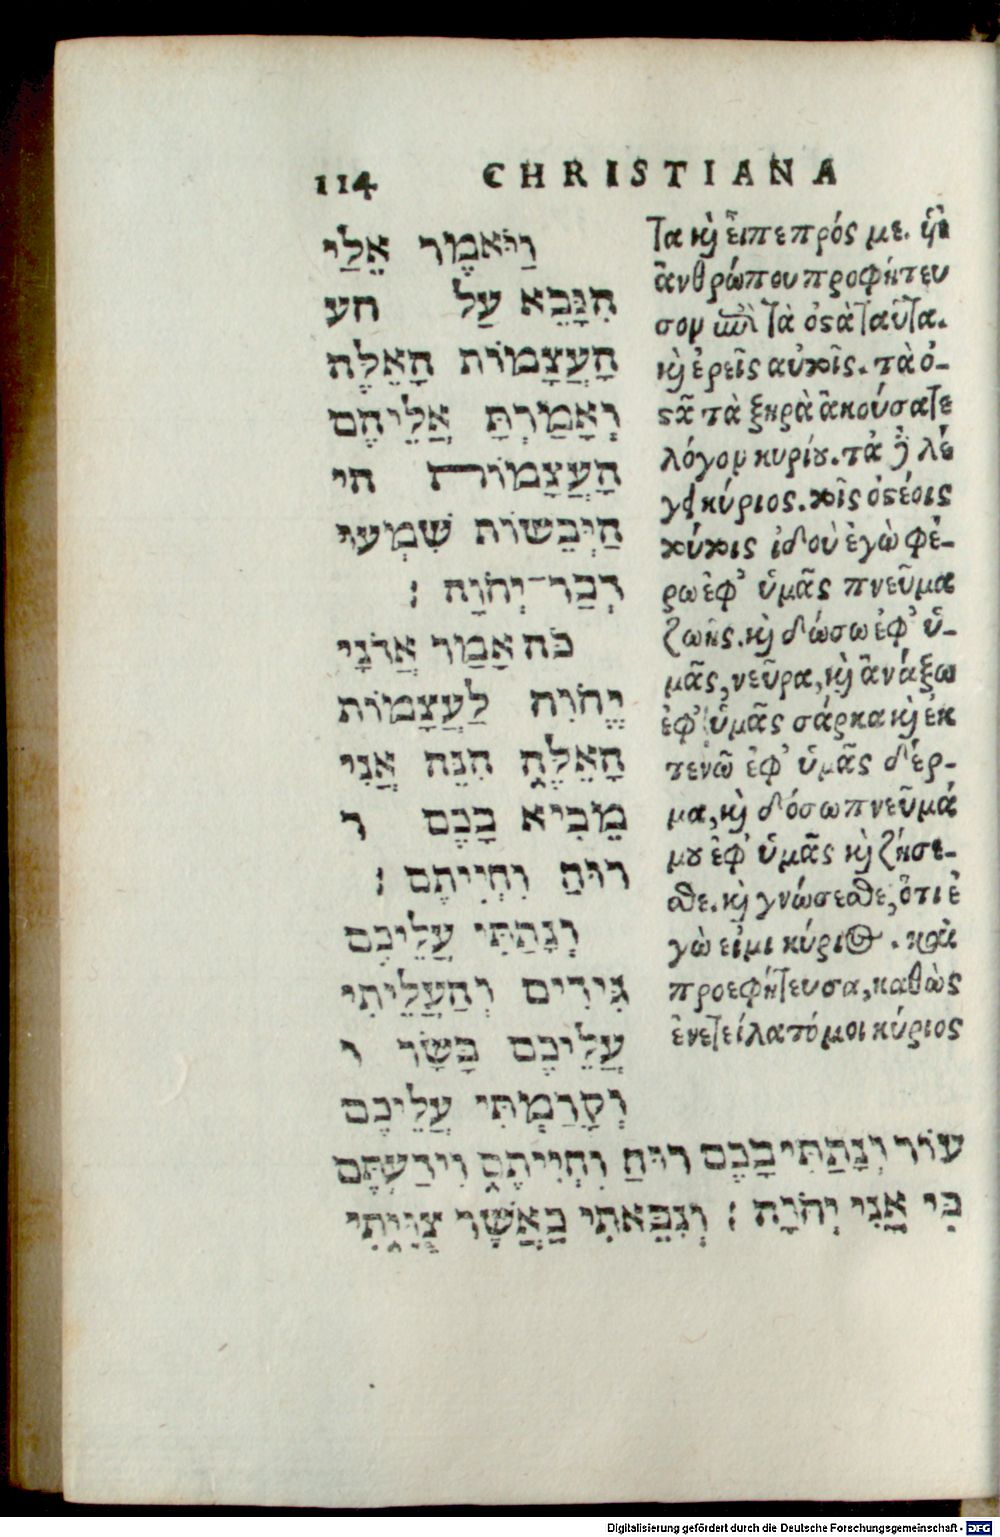 114 CHRISTIANA
וַיֹּאמֶר אֵלַי
הִנָּבֵא עַל הע
הָעֲצָמוֹת הָאֵלֶּה
וְאָמַרְתָּ אֲלֵיהֶם
הָעֲצָמוֹת הי
הַיְּבֵשׁוֹת שִׁמְעוּ
דְּבַר־יְהֹוָה :
כֹּה אָמַר אֲדֹנָי
יֱהֹוִה לַעֲצָמוֹת
הָאֵלֶּה הִנֵּה אֲנִי
מֵבִיא בָכֶם ר
רוּחַ וִחְיִיתֶם :
וְנָתַתִּי עֲלֵיכֶם
גִּידִים וְהַעֲלֵיתִי
עֲלֵיכֶם בָּשָׂר ו
וְקָרַמְתִּי עֲלֵיכֶם
עוֹר וְנָתַתִּי בָכֶם רוּחַ וִחְיִיתֶם וִידַעְתֶּם
כִּי אֲנִי יְהֹוָה : וְנִבֵּאתִי כַּאֲשֶׁר צֻוֵּיתִי
τα καὶ εἶπε πρός με. ὑιὲ
ἀνθρώπου προφήτευ
σον ἐπὶ τὰ ὀστὰ ταῦτα.
καὶ ἐρεῖς αὐτοῖς. τὰ ὀ-
στᾶ τὰ ξηρὰ ἀκούσατε
λόγον κυρίου. τάδε λέ
γει κύριος. τοῖς ὀστέοις
τούτοις ἰδοὺ ἐγὼ φέ-
ρω ἐφ' ὑμᾶς πνεῦμα
ζωῆς. καὶ δώσω ἐφ' ὑ-
μᾶς, νεῦρα, καὶ ἀνάξω
ἐφ' ὑμᾶς σάρκα καὶ ἐκ
τενῶ ἐφ' ὑμᾶς δέρ-
μα, καὶ δόσω πνεῦμά
μου ἐφ' ὑμᾶς καὶ ζήσε-
σθε. καὶ γνώσεσθε, ὅτι ἐ
γὼ εἰμι κύριος. καὶ
προεφήτευσα, καθὼς
ἐνετείλατό μοι κύριος
Digitalisierung gefördert durch die Deutsche Forschungsgemeinschaft - DFG